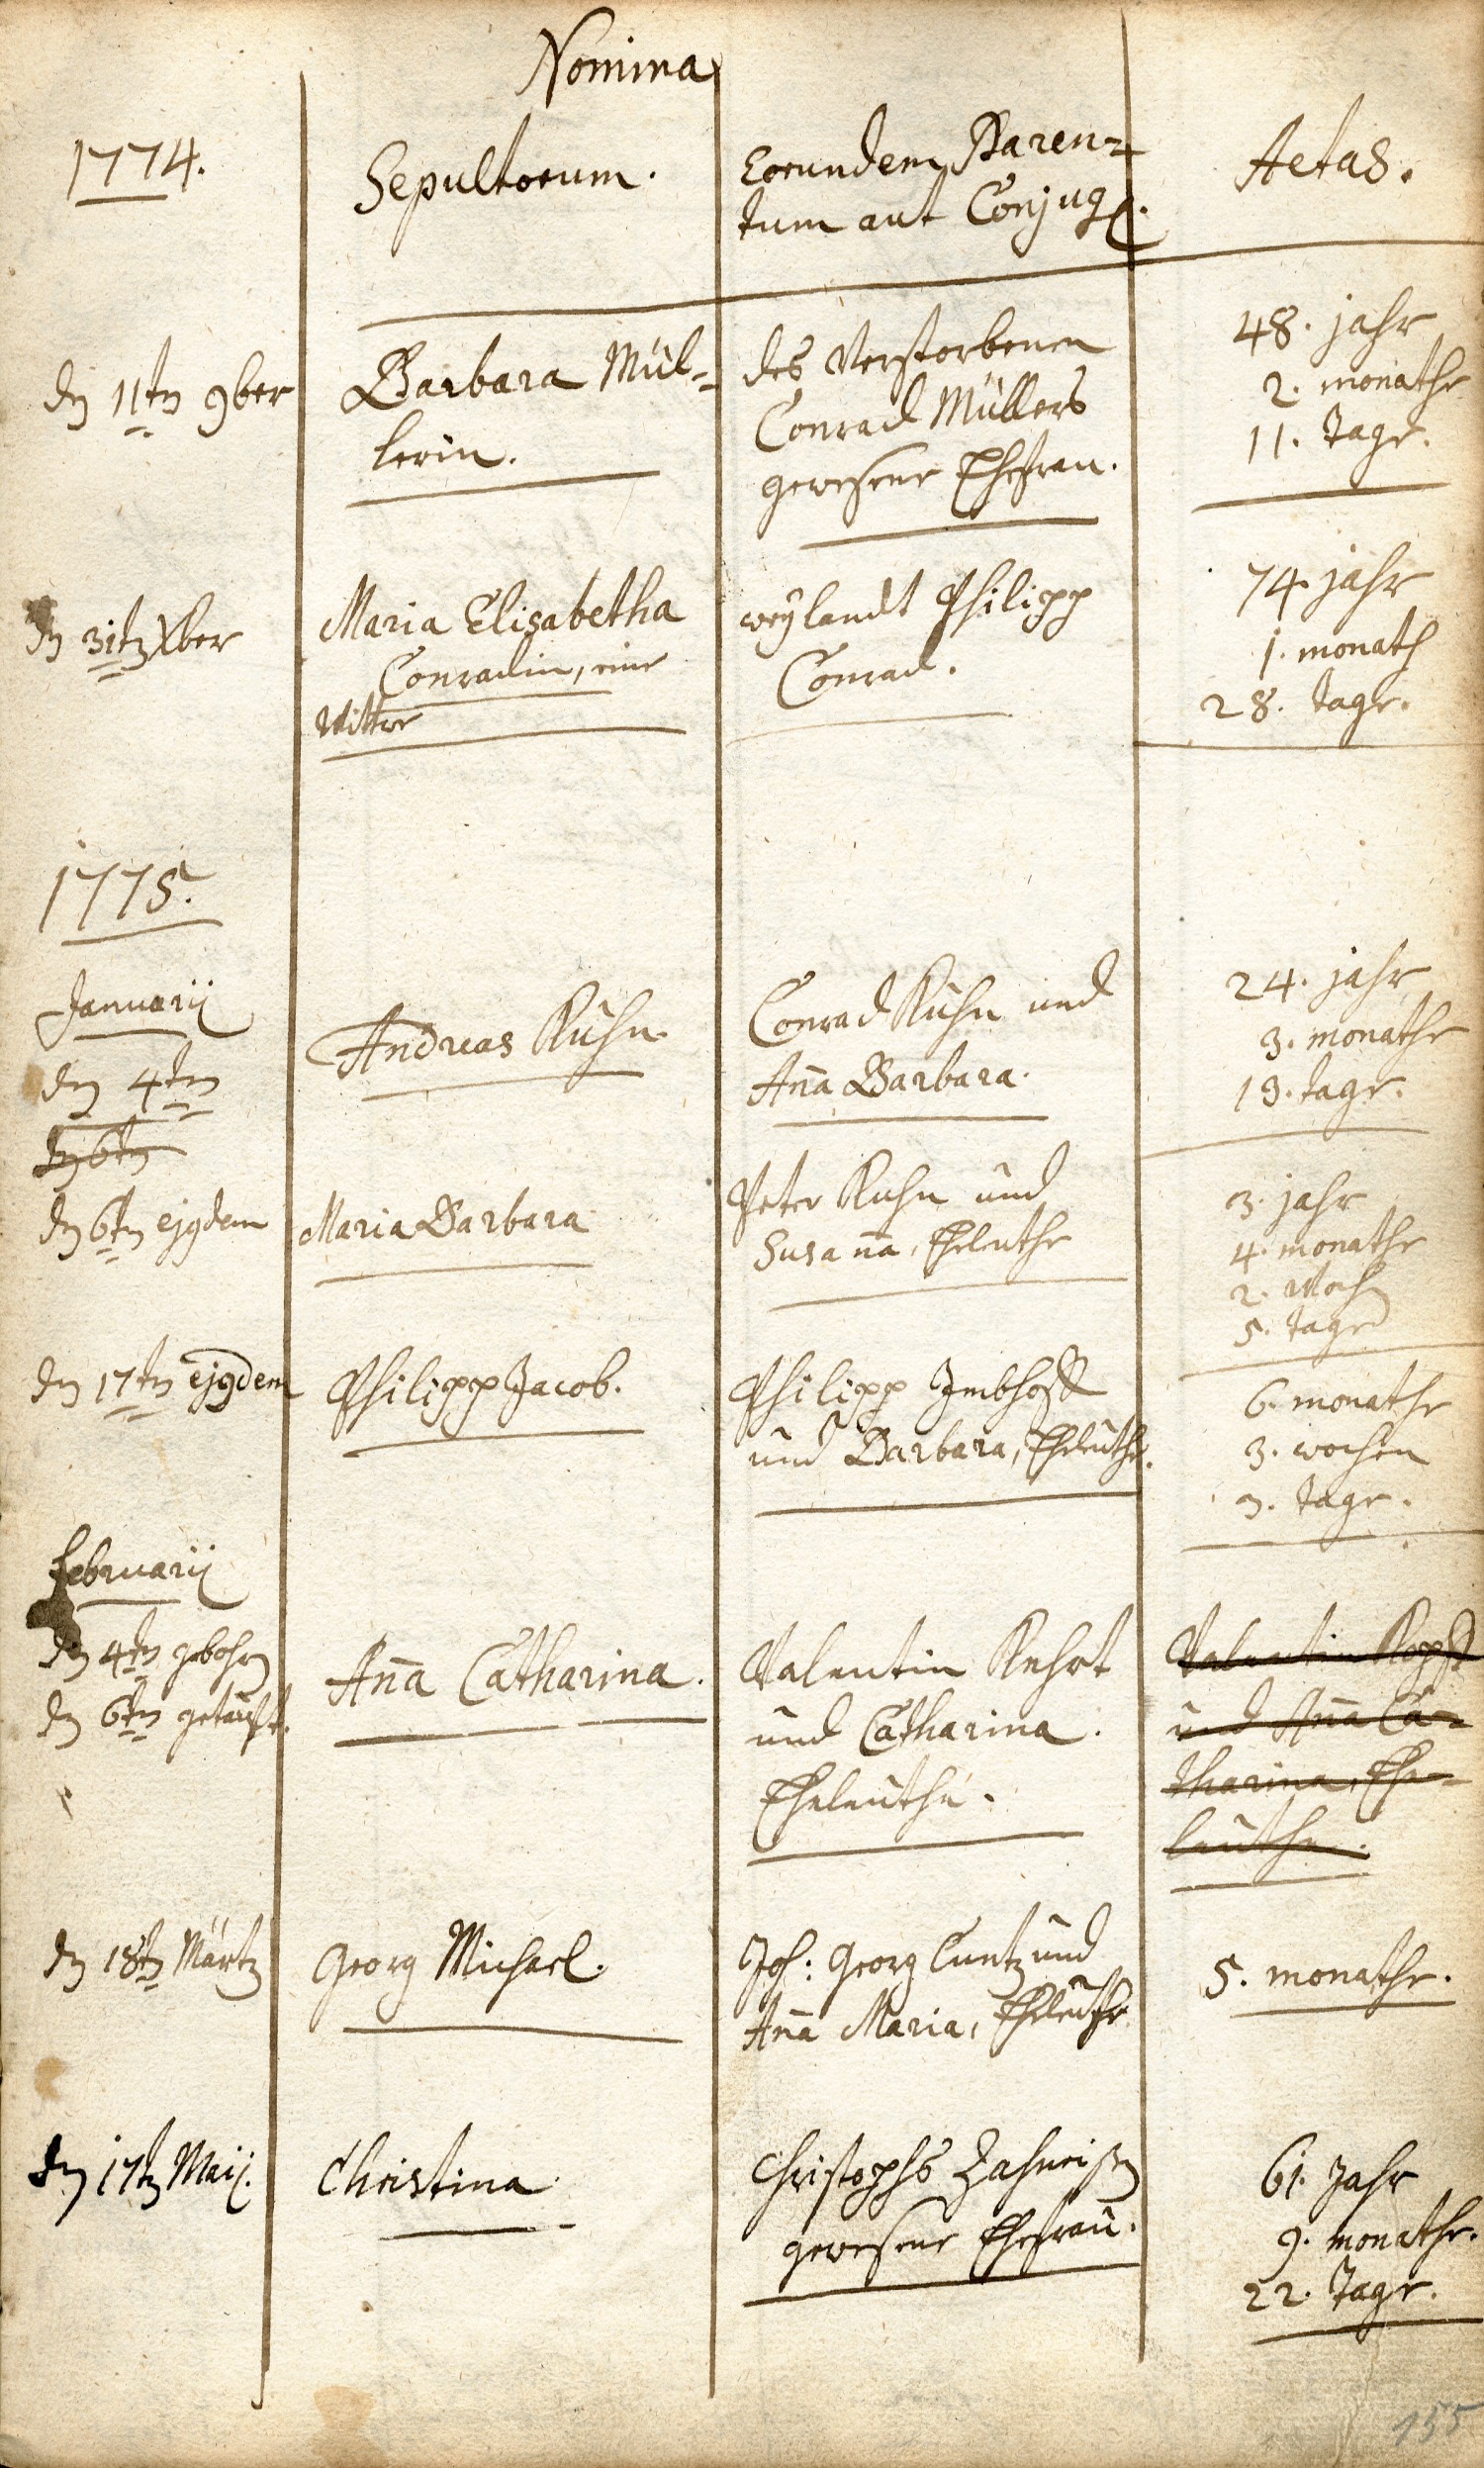 Nomina
1774.
Sepultorum.
Eorundem Paren=
tum aut Conjug.
Aetas.
dn 11tn 9ber
Barbara Mül=
lerin.
des Verstorbenen
Conrad Müllers
gewesene Ehefrau.
48. jahr
2. monathe
11. Tage.
dn 31tn Xber
Maria Elisabetha
Conradin, eine
Wittwe
weylandt Philipp
Conrad.
74. jahr
1. monath
28. tage.
1775.
Januarij
dn 4tn
Andreas Kuhn
Conrad Kuhn und
Aña Barbara.
24. jahr
3. monathe
19. tage.
dn 6tn
dn 6tn ejqdem
Maria Barbara
Peter Kuhn und
Susaña, Eheleuthe
3. jahr
4. monathe
2. Woch
5. tage
dn 17tn ejqdem
Philipp Jacob.
Philipp Imbhoff
und Barbara, Eheleuthe.
6. monathe
3. wochen
3. tage.
februarij
dn 4tn gebohrn
dn 6tn getauft.
Aña Catharina.
Valentin
und Catharina.
Eheleuthe.
Valentin Kopff
und Aña Ca=
tharina, Ehe=
leuthe.
dn 18tn Märtz
Georg Michael.
Joh: Georg Cuntz und
Aña Maria, Eheleuthe
5. monathe.
dn 17tn Maij.
Christina
Christophs
gewesene Ehefrau.
61. Jahr
9. monathe.
22. Tage.
155